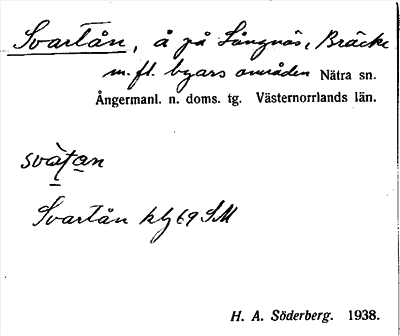 Svartån, å på Långnäs, Bräcke
m. fl. byars områden Nätra sn.
Ångermanl. n. doms. tg. Västernorrlands län.
svàṭan
Svartån klj 69 SM
H. A. Söderberg. 1938.